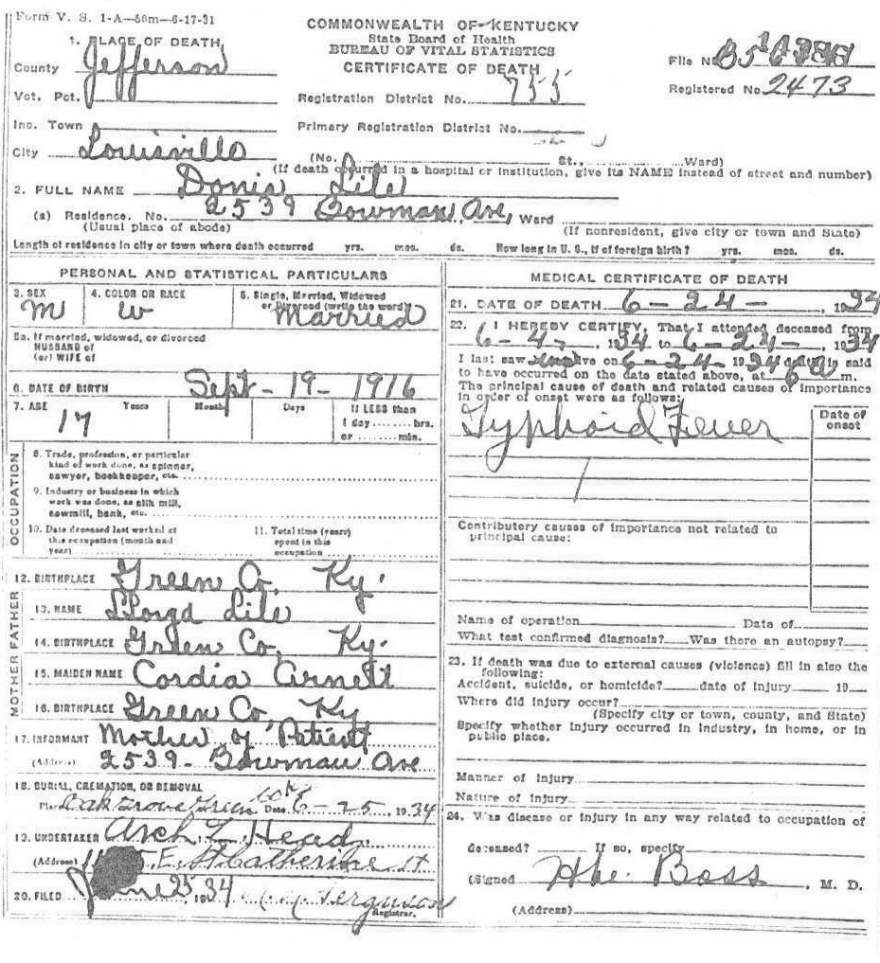 Form V. S. 1-A—50m—6-17-31
COMMONWEALTH OF KENTUCKY
State Board of Health
BUREAU OF VITAL STATISTICS
CERTIFICATE OF DEATH
File No.
Registered No. 2473
1. PLACE OF DEATH
County Jefferson
Vot. Pct.
Registration District No. 755
Inc. Town
Primary Registration District No.
City Louisville
(No. St., Ward)
(If death occurred in a hospital or institution, give its NAME instead of street and number)
2. FULL NAME Donis Lile
(a) Residence. No. 2539 Bowman Ave, Ward
(Usual place of abode) (If nonresident, give city or town and State)
Length of residence in city or town where death occurred yrs. mos. ds. How long in U. S., if of foreign birth? yrs. mos. ds.
PERSONAL AND STATISTICAL PARTICULARS
3. SEX 4. COLOR OR RACE 5. Single, Married, Widowed
or Divorced (write the word)
M W Married
5a. If married, widowed, or divorced
HUSBAND of
(or) WIFE of
6. DATE OF BIRTH Sept - 19 - 1916
7. AGE Years Months Days If LESS than
17 1 day ........ hrs.
or ........ min.
OCCUPATION
8. Trade, profession, or particular
kind of work done, as spinner,
sawyer, bookkeeper, etc.
9. Industry or business in which
work was done, as silk mill,
sawmill, bank, etc.
10. Date deceased last worked at
this occupation (month and
year)
11. Total time (years)
spent in this
occupation
12. BIRTHPLACE Green Co, Ky.
FATHER
13. NAME Lloyd Lile
14. BIRTHPLACE Green Co, Ky.
MOTHER
15. MAIDEN NAME Cordia Arnett
16. BIRTHPLACE Green Co Ky
17. INFORMANT Mother of Patient
(Address) 2539 - Bowman Ave
18. BURIAL, CREMATION, OR REMOVAL
Place Oak Grove Green Co Ky Date 6-25, 1934
19. UNDERTAKER Arch L. Head
(Address) E. St Catherine St
20. FILED June 25 1934 Ferguson
Registrar.
MEDICAL CERTIFICATE OF DEATH
21. DATE OF DEATH 6 - 24 - , 1934
22. I HEREBY CERTIFY, That I attended deceased from
6 - 4 - , 1934 to 6 - 24 - , 1934
I last saw him alive on 6 - 24 - 1934 death is said
to have occurred on the date stated above, at 6 a m.
The principal cause of death and related causes of importance
in order of onset were as follows:
Date of
onset
Typhoid Fever
Contributory causes of importance not related to
principal cause:
Name of operation Date of
What test confirmed diagnosis? Was there an autopsy?
23. If death was due to external causes (violence) fill in also the
following:
Accident, suicide, or homicide? date of injury 19
Where did injury occur?
(Specify city or town, county, and State)
Specify whether injury occurred in industry, in home, or in
public place.
Manner of injury
Nature of injury
24. Was disease or injury in any way related to occupation of
deceased? If so, specify
(Signed Boss, M. D.
(Address)